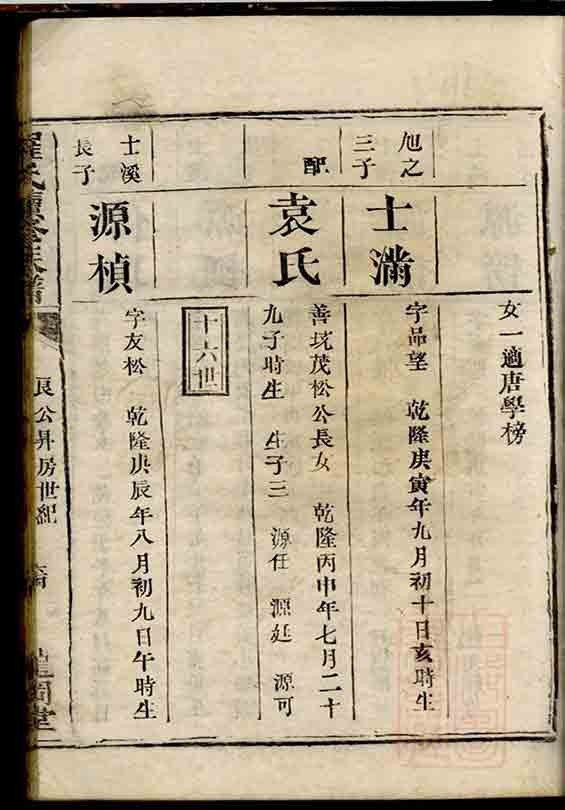 女一適唐學榜
旭之
三子
士滿
字品望 乾隆庚寅年九月初十日亥時生
配
袁氏
善琉茂松公長女 乾隆丙申年七月二十
九子時生 生子三 源任 源延 源可
十六世
士溪
長子
源楨
字友松 乾隆庚辰年八月初九日午時生
羅氏續修族譜
良公昇房世紀